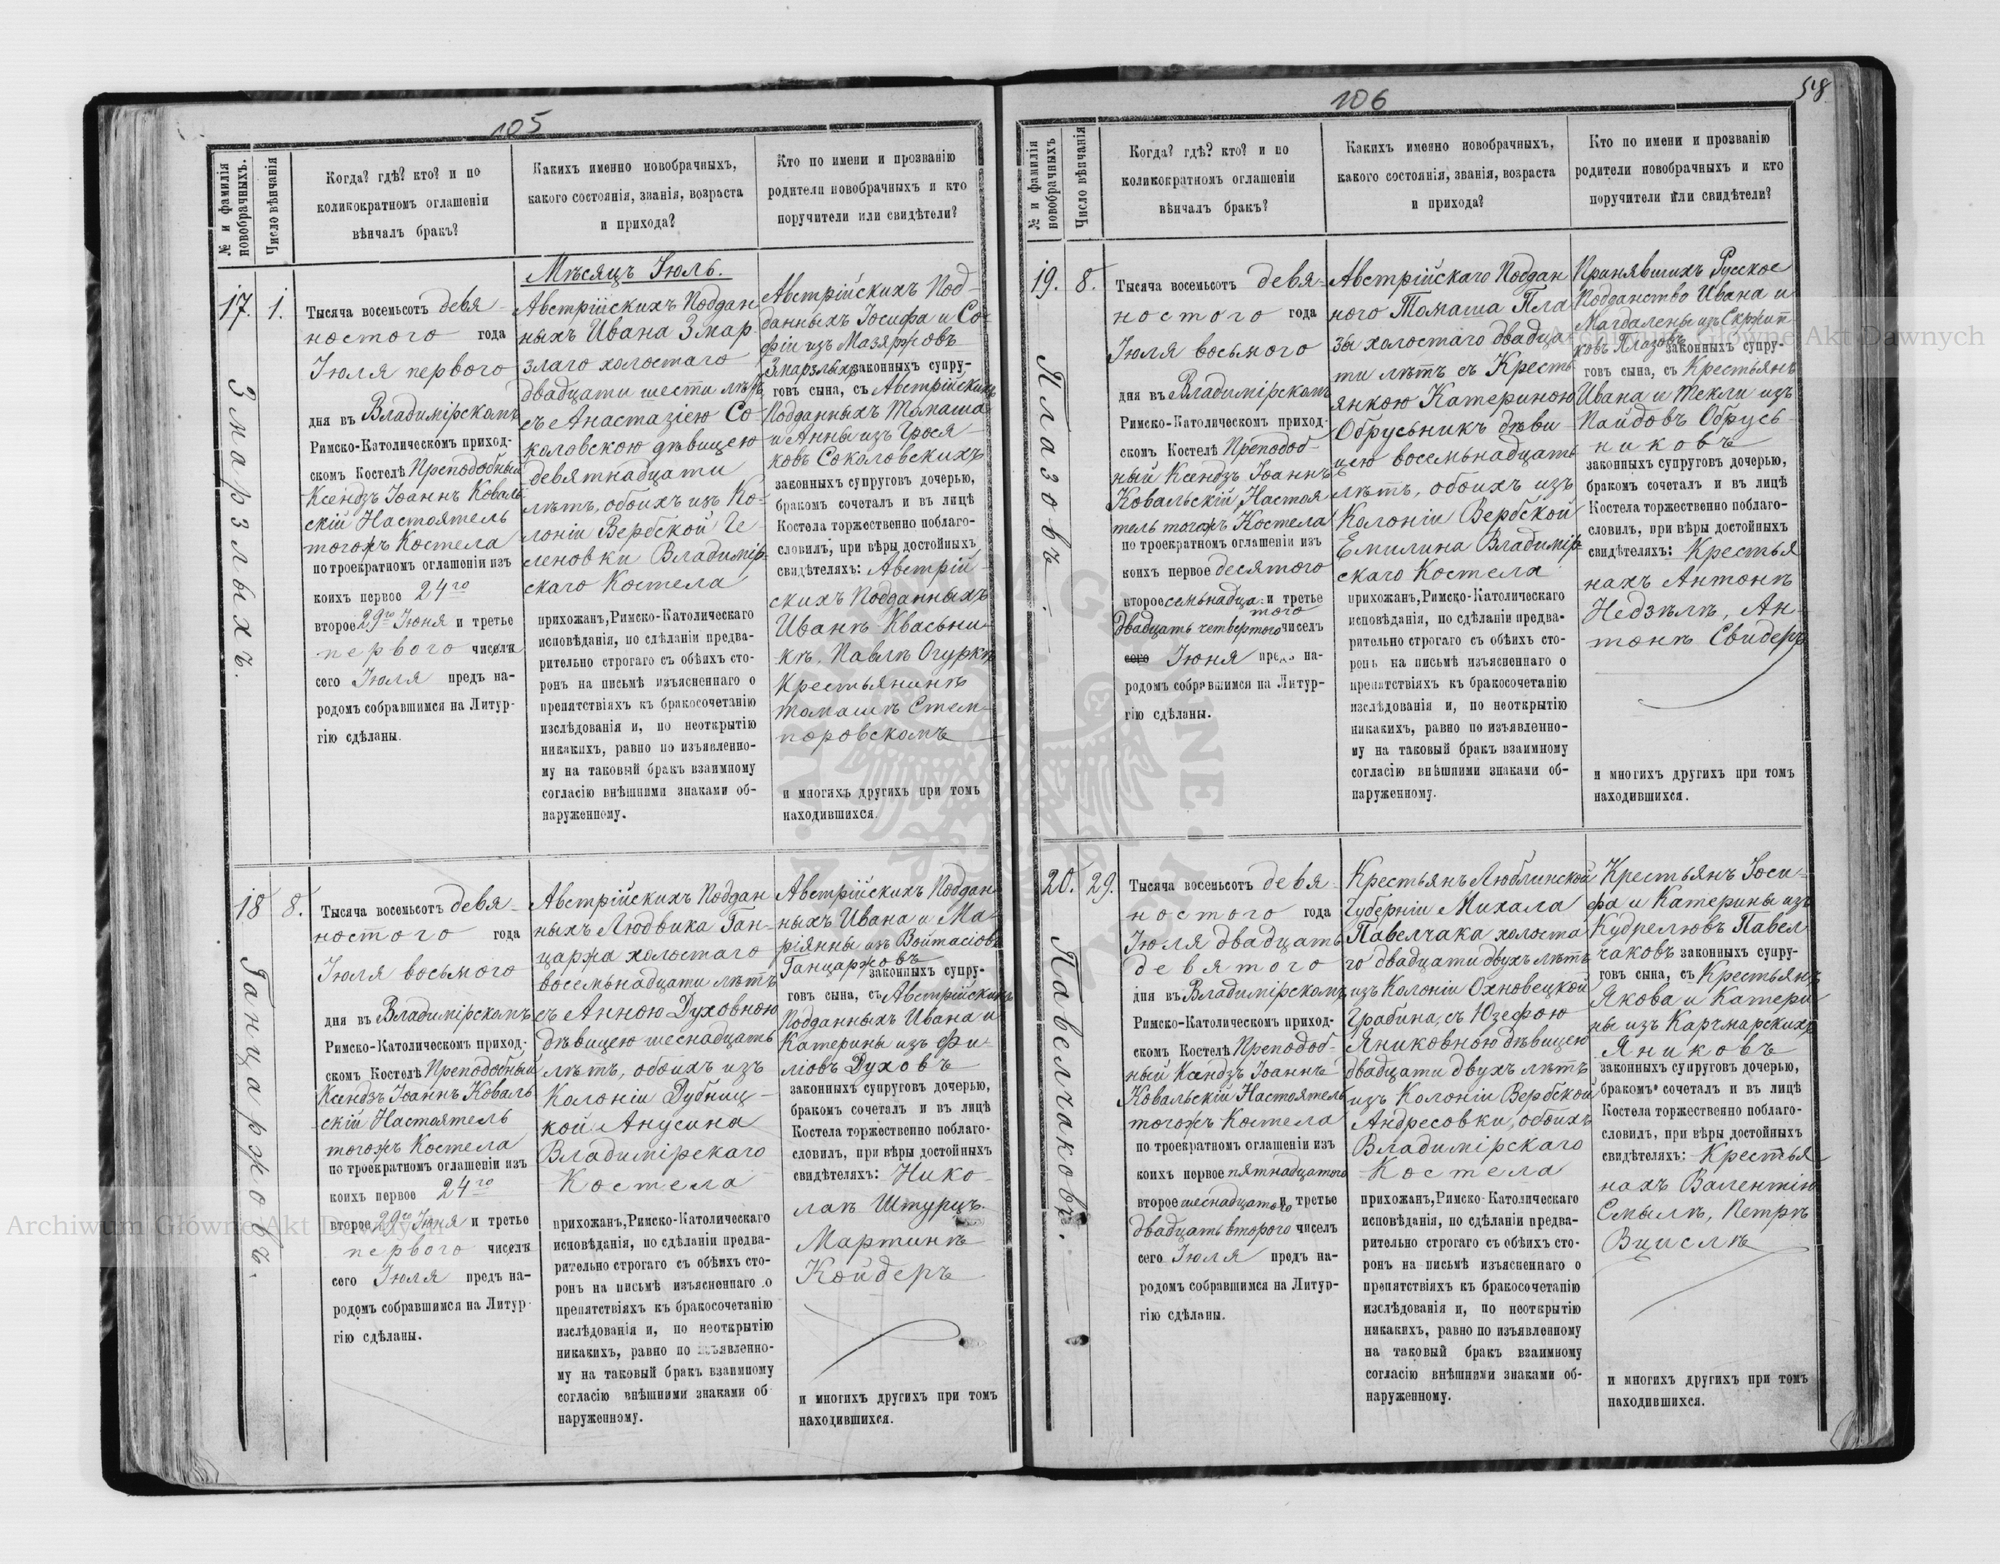 105
№ и фамилія новобрачныхъ.
Число вѣнчанія
Когда? гдѣ? кто? и по
коликократномъ оглашеніи
вѣнчалъ бракъ?
Какихъ именно новобрачныхъ,
какого состоянія, званія, возраста
и прихода?
Кто по имени и прозванію
родители новобрачныхъ и кто
поручители или свидѣтели?
17.
Змарзлыхъ.
1.
Тысяча восемьсотъ девя-
ностого года
Іюля первого
дня въ Владимірскомъ
Римско-Католическомъ приход-
скомъ Костелѣ Преподобный
Ксендзъ Іоаннъ Коваль
скій Настоятель
тогожъ Костела
по троекратномъ оглашеніи изъ
коихъ первое 24го
второе 29го Іюня и третье
первого числа
сего Іюля предъ на-
родомъ собравшимся на Литур-
гію сдѣланы.
Мѣсяцъ Іюль.
Австрійскихъ Поддан
ныхъ Ивана Змар
злаго холостаго
двадцати шести лѣтъ
съ Анастазіею Со
коловскою дѣвицею
девятнадцати
лѣтъ, обоихъ изъ Ко-
лоніи Вербской Ге-
леновки Владимір-
скаго Костела
прихожан, Римско-Католическаго
исповѣданія, по сдѣланіи предва-
рительно строгаго съ обѣихъ сто-
ронъ на письмѣ изъясненнаго о
препятствіяхъ къ бракосочетанію
изслѣдованія и, по неоткрытію
никакихъ, равно по изъявленно-
му на таковый бракъ взаимному
согласію внѣшними знаками об-
наруженному.
Австрійскихъ Под-
данныхъ Іосифа и Со-
фіи изъ Мазяржовъ
Змарзлыхъ законныхъ супру-
говъ сына, съ Австрійскихъ
Подданныхъ Томаша
и Анны изъ Грося-
ковъ Соколовскихъ
законныхъ супруговъ дочерью,
бракомъ сочеталъ и въ лицѣ
Костела торжественно поблаго-
словилъ, при вѣры достойныхъ
свидѣтеляхъ: Австрій-
скихъ Подданныхъ
Иванѣ Квасьни-
кѣ, Павлѣ Огуркѣ
Крестьянинѣ
Томашѣ Стем-
поровскомъ
и многихъ другихъ при томъ
находившихся.
18
Ганцаржовъ.
8.
Тысяча восемьсотъ девя-
ностого года
Іюля восьмого
дня въ Владимірскомъ
Римско-Католическомъ приход-
скомъ Костелѣ Преподобный
Ксендзъ Іоаннъ Коваль
скій Настоятель
тогожъ Костела
по троекратномъ оглашеніи изъ
коихъ первое 24го
второе 29го Іюня и третье
первого числа
сего Іюля предъ на-
родомъ собравшимся на Литур-
гію сдѣланы.
Австрійскихъ Поддан
ныхъ Людвика Ган-
царжа холостаго
восемьнадцати лѣтъ
съ Анною Духовною
дѣвицею шеснадцать
лѣтъ, обоихъ изъ
Колоніи Дубниц-
кой Анусина
Владимірскаго
Костела
прихожан, Римско-Католическаго
исповѣданія, по сдѣланіи предва-
рительно строгаго съ обѣихъ сто-
ронъ на письмѣ изъясненнаго о
препятствіяхъ къ бракосочетанію
изслѣдованія и, по неоткрытію
никакихъ, равно по изъявленно-
му на таковый бракъ взаимному
согласію внѣшними знаками об
наруженному.
Австрійскихъ Поддан-
ныхъ Ивана и Ма-
ріянны изъ Войтасіовъ
Ганцаржовъ
законныхъ супру-
говъ сына, съ Австрійскихъ
Подданныхъ Ивана и
Катерины изъ Фи-
ліовъ Духовъ
законныхъ супруговъ дочерью,
бракомъ сочеталъ и въ лицѣ
Костела торжественно поблаго-
словилъ, при вѣры достойныхъ
свидѣтеляхъ: Нико-
лаѣ Штурцъ.
Мартинѣ
Койдеръ
и многихъ другихъ при томъ
находившихся.
106
58
№ и фамилія новобрачныхъ
Число вѣнчанія
Когда? гдѣ? кто? и по
коликократномъ оглашеніи
вѣнчалъ бракъ?
Какихъ именно новобрачныхъ,
какого состоянія, званія, возраста
и прихода?
Кто по имени и прозванію
родители новобрачныхъ и кто
поручители или свидѣтели?
19.
Плазовъ.
8.
Тысяча восемьсотъ девя-
ностого года
Іюля восьмого
дня въ Владимірскомъ
Римско-Католическомъ приход-
скомъ Костелѣ Преподоб-
ный Ксендзъ Іоаннъ
Ковальскій Настоя
тель тогожъ Костела
по троекратномъ оглашеніи изъ
коихъ первое десятого
второе семьнадца- и третье
того
двадцать четвертого чиселъ
сего Іюня предъ на-
родомъ собравшимся на Литур-
гію сдѣланы.
Австрійскаго Поддан
ного Томаша Пла
зы холостаго двадца
ти лѣтъ съ Кресть
янкою Катериною
Обрусьникъ дѣви
цею восемьнадцать
лѣтъ, обоихъ изъ
Колоніи Вербской
Емилина Владимір-
скаго Костела
прихожан, Римско-Католическаго
исповѣданія, по сдѣланіи предва-
рительно строгаго съ обѣихъ сто-
ронъ на письмѣ изъясненнаго о
препятствіяхъ къ бракосочетанію
изслѣдованія и, по неоткрытію
никакихъ, равно по изъявленно-
му на таковый бракъ взаимному
согласію внѣшними знаками об-
наруженному.
Принявшихъ Русское
Подданство Ивана и
Магдалены изъ Скржип
ковъ Плазовъ законныхъ супру-
говъ сына, съ Крестьянъ
Ивана и Текли изъ
Пайдовъ Обрусь-
никовъ
законныхъ супруговъ дочерью,
бракомъ сочеталъ и въ лицѣ
Костела торжественно поблаго-
словилъ, при вѣры достойныхъ
свидѣтеляхъ: Крестья
нахъ Антонѣ
Недзѣлѣ, Ан-
тонѣ Свидеръ
и многихъ другихъ при томъ
находившихся.
20.
Павелчаковъ.
29.
Тысяча восемьсотъ девя-
ностого года
Іюля двадцать
девятого
дня въ Владимірскомъ
Римско-Католическомъ приход-
скомъ Костелѣ Преподоб-
ный Ксендзъ Іоаннъ
Ковальскій Настоятель
тогожъ Костела
по троекратномъ оглашеніи изъ
коихъ первое пятнадцатого
второе шеснадцатого и третье
двадцать второго чиселъ
сего Іюля предъ на-
родомъ собравшимся на Литур-
гію сдѣланы.
Крестьянъ Люблинской
Губерніи Михала
Павелчака холоста
го двадцати двухъ лѣтъ
изъ Колоніи Охновецкой
Грабина, съ Юзефою
Яниковною дѣвицею
двадцати двухъ лѣтъ
изъ Колоніи Вербской
Андресовки, обоихъ
Владимірскаго
Костела
прихожан, Римско-Католическаго
исповѣданія, по сдѣланіи предва-
рительно строгаго съ обѣихъ сто-
ронъ на письмѣ изъясненнаго о
препятствіяхъ къ бракосочетанію
изслѣдованія и, по неоткрытію
никакихъ, равно по изъявленному
на таковый бракъ взаимному
согласію внѣшними знаками об-
наруженному.
Крестьянъ Іоси-
фа и Катерины изъ
Кудрелювъ Павел
чаковъ законныхъ супру-
говъ сына, съ Крестьянъ
Якова и Катери
ны изъ Карчмарскихъ
Яниковъ
законныхъ супруговъ дочерью,
бракомъ сочеталъ и въ лицѣ
Костела торжественно поблаго-
словилъ, при вѣры достойныхъ
свидѣтеляхъ: Крестья
нахъ Валентіи
Смылѣ, Петрѣ
Вцислѣ
и многихъ другихъ при томъ
находившихся.
Archiwum Główne Akt Dawnych
Archiwum Główne Akt Dawnych